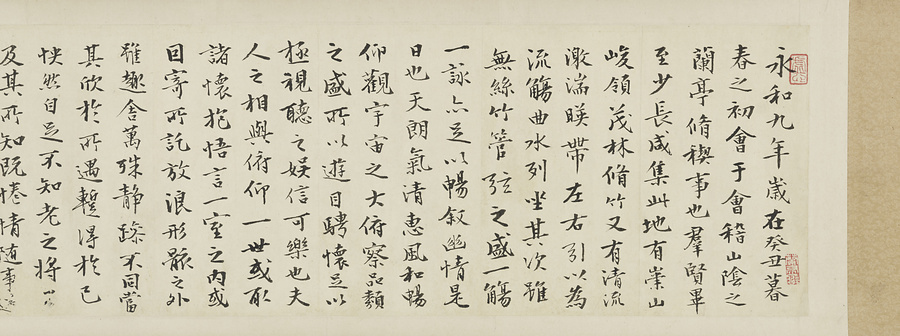 永和九年歲在癸丑暮
春之初會于會稽山陰之
蘭亭脩稧事也羣賢畢
至少長咸集此地有崇山
峻嶺茂林脩竹又有清流
激湍暎帶左右引以為
流觴曲水列坐其次雖
無絲竹管弦之盛一觴
一詠亦足以暢敘幽情是
日也天朗氣清惠風和暢
仰觀宇宙之大俯察品類
之盛所以遊目騁懷足以
極視聽之娛信可樂也夫
人之相與俯仰一世或取
諸懷抱悟言一室之內或
因寄所託放浪形骸之外
雖趣舍萬殊靜躁不同當
其欣於所遇蹔得於己
怏然自足不知老之將
及其所知既惓情隨事